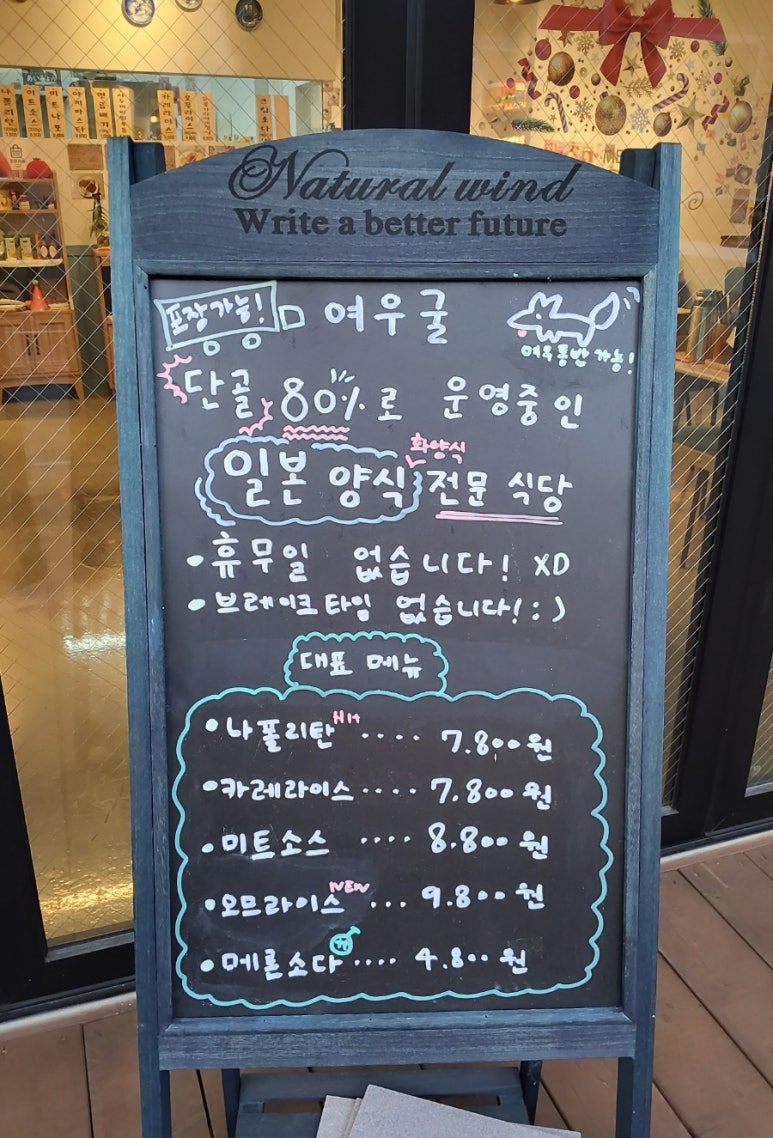 Natural wind
Write a better future
포장가능! 여우굴
여우동반 가능!
단골 80%로 운영중인
화양식
일본 양식 전문 식당
• 휴무일 없습니다! XD
• 브레이크타임 없습니다! : )
대표 메뉴
• 나폴리탄 HIT .... 7.800원
• 카레라이스 .... 7.800원
• 미트소스 .... 8.800원
• 오므라이스 NEW ... 9.800원
• 메론소다 .... 4.800원